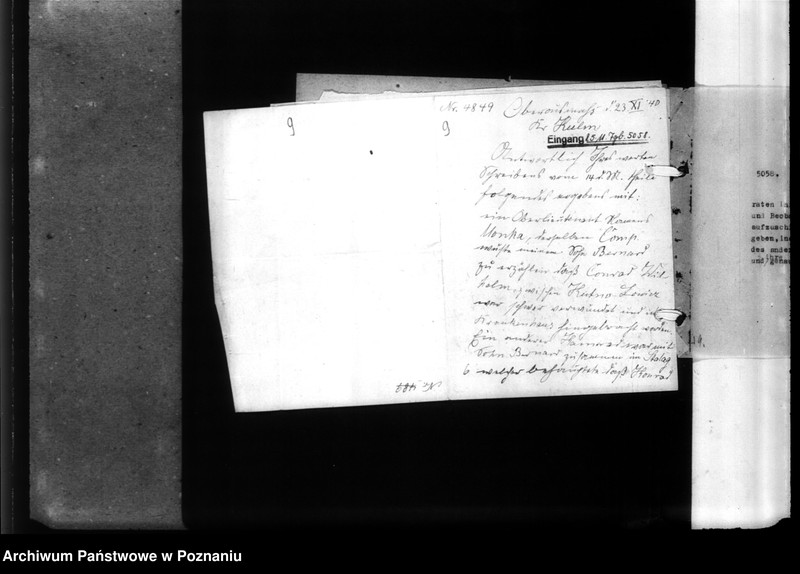 9
9
Nr. 4849
d. 23 XI 40
Kr. Kulm
Eingang 25.11. Tgb. 5058.
Antwortlich Ihres werten
Schreibens vom 14. d. M. theile
folgendes ergebens mit:
ein Oberlieutnant Namens
Monka, derselben Comp.
wußte meinem Sohn Bernard
zu erzählen daß Conrad Wil
helm, zwischen Kutno-Lowicz
war schwer verwundet und ins
Krankenhaus hingebracht worden
Ein anderer Kamerad war mit
Sohn Bernard zusammen im Stalag
welcher behauptete daß Konrad
5058.
und Beoba
geben, in
des ander
Archiwum Państwowe w Poznaniu